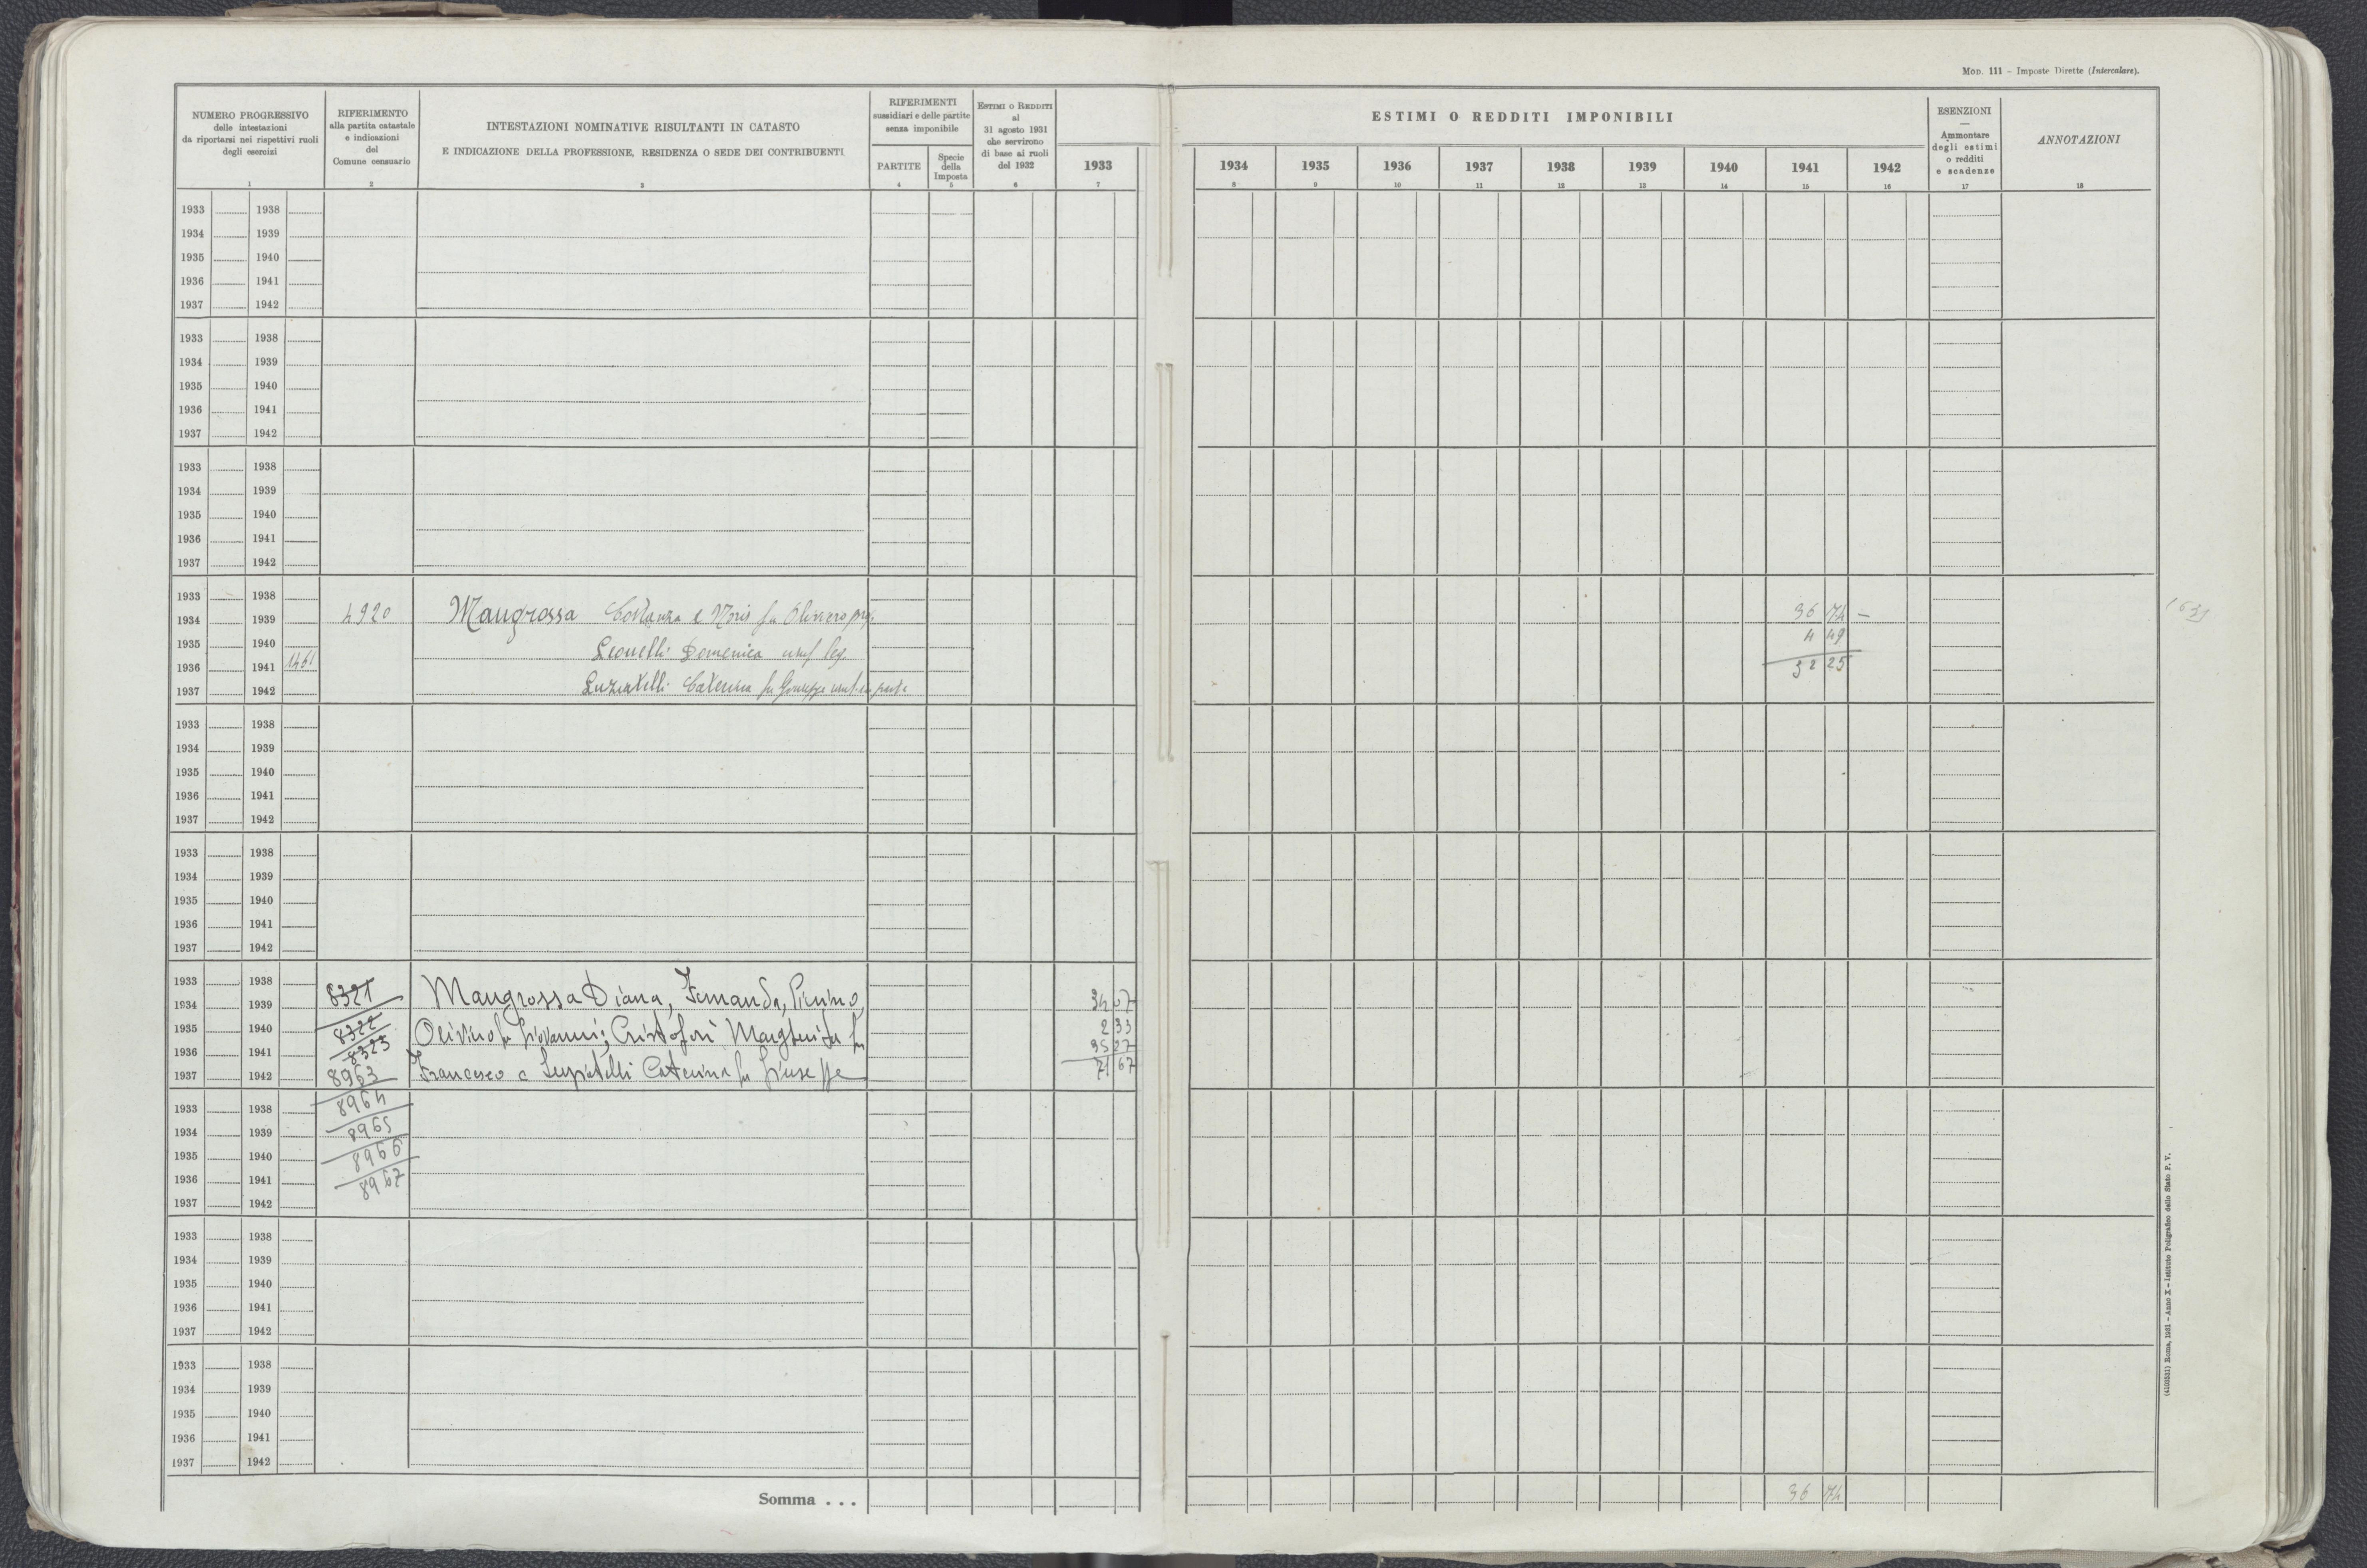 MOD. 111 – Imposte Dirette (Intercalare).
NUMERO PROGRESSIVO
delle intestazioni
da riportarsi nei rispettivi ruoli
degli esercizi
1
RIFERIMENTO
alla partita catastale
e indicazioni
del
Comune censuario
2
INTESTAZIONI NOMINATIVE RISULTANTI IN CATASTO
E INDICAZIONE DELLA PROFESSIONE, RESIDENZA O SEDE DEI CONTRIBUENTI
3
RIFERIMENTI
sussidiari e delle partite
senza imponibile
PARTITE
4
Specie
della
Imposta
5
ESTIMI O REDDITI
al
31 agosto 1931
che servirono
di base ai ruoli
del 1932
6
ESTIMI O REDDITI IMPONIBILI
1933 1934 1935 1936 1937 1938 1939 1940 1941 1942
7 8 9 10 11 12 13 14 15 16
ESENZIONI
—
Ammontare
degli estimi
o redditi
e scadenze
17
ANNOTAZIONI
18
1933 1938
1934 1939
1935 1940
1936 1941
1937 1942
1933 1938
1934 1939
1935 1940
1936 1941
1937 1942
1933 1938
1934 1939
1935 1940
1936 1941
1937 1942
1933 1938
1934 1939 4920 Mangrossa Costanza e Moris fu Oliviero prop. 36 74 –
1935 1940 4 49
Leonelli Domenica usuf leg.
1936 1941 1461 32 25
1937 1942 Luziatelli Caterina fu Giuseppe usuf. in parte
1933 1938
1934 1939
1935 1940
1936 1941
1937 1942
1933 1938
1934 1939
1935 1940
1936 1941
1937 1942
1933 1938
1934 1939 8321 Mangrossa Diana, Fernanda, Pierino, 34 07
1935 1940 8322 Olivino fu Giovanni; Cristofori Margherita fu 2 33
1936 1941 8323 35 27
1937 1942 8963 Francesco e Luziatelli Caterina fu Giuseppe 71 67
1933 1938 8964
1934 1939 8965
1935 1940 8966
1936 1941 8967
1937 1942
1933 1938
1934 1939
1935 1940
1936 1941
1937 1942
1933 1938
1934 1939
1935 1940
1936 1941
1937 1942
Somma . . . 36 74
(4100531) Roma, 1931 – Anno X – Istituto Poligrafico dello Stato P. V.